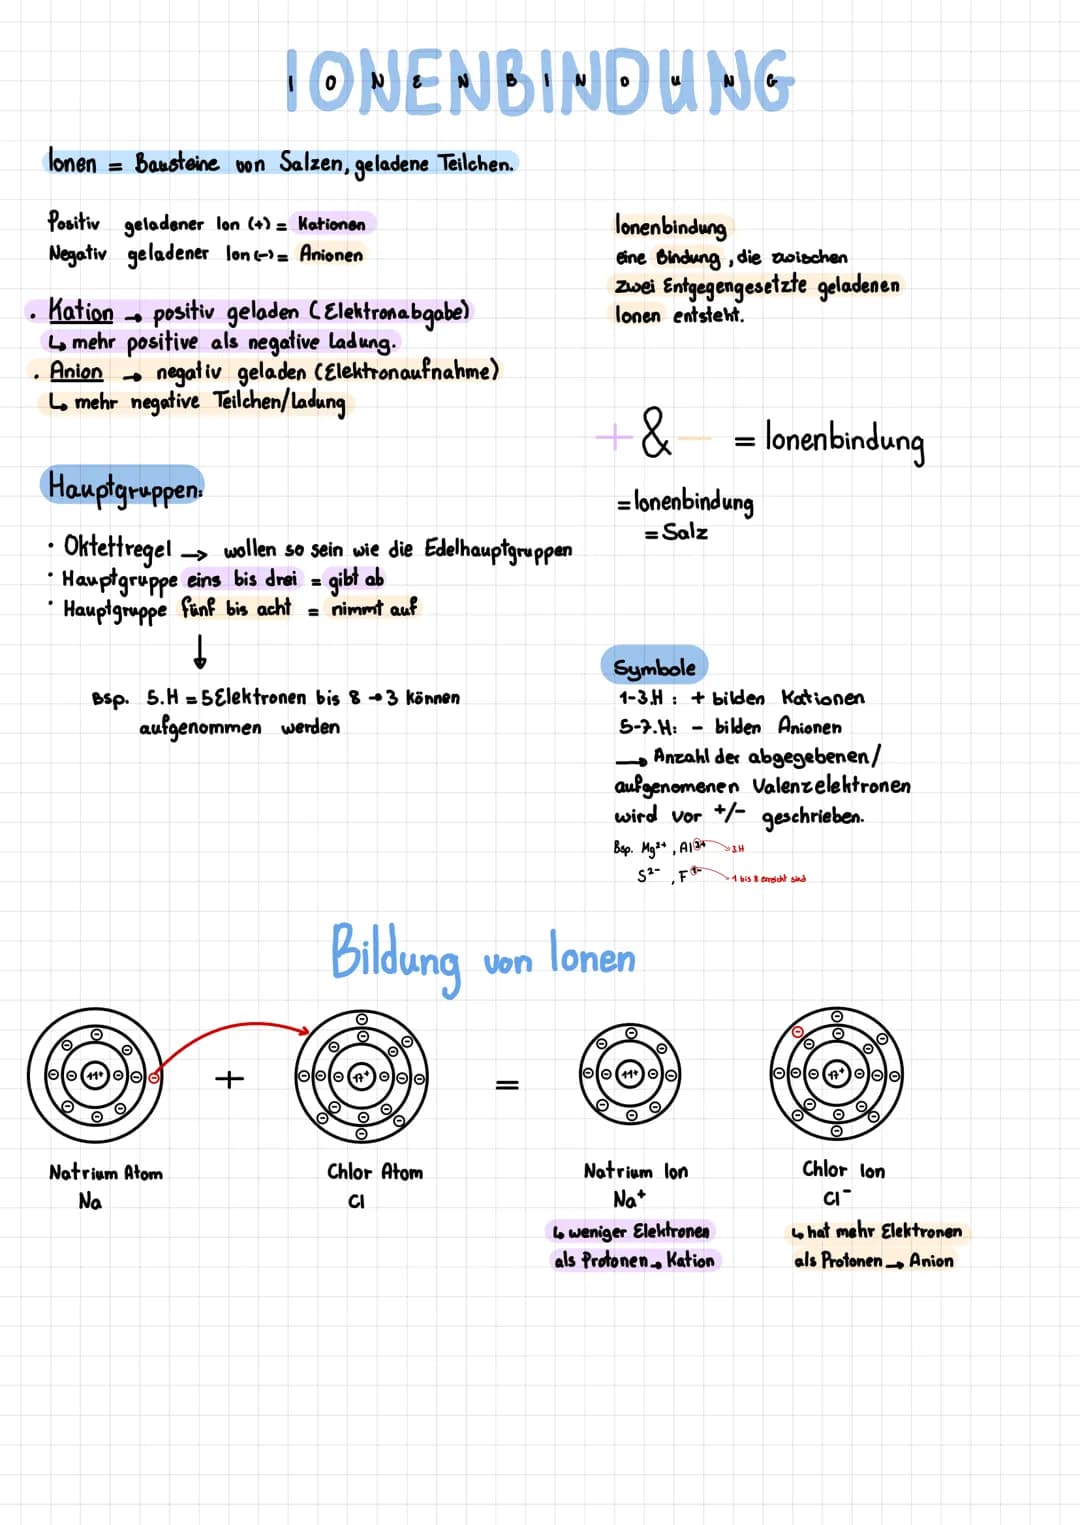 IONENBINDUNG
Ionen = Bausteine von Salzen, geladene Teilchen.
Positiv geladener Ion (+) = Kationen
Negativ geladener Ion (-) = Anionen
• Kation → positiv geladen (Elektronabgabe)
↳ mehr positive als negative Ladung.
• Anion → negativ geladen (Elektronaufnahme)
↳ mehr negative Teilchen/Ladung
Ionenbindung
eine Bindung, die zwischen
zwei Entgegengesetzte geladenen
Ionen entsteht.
+ & - = Ionenbindung
= Ionenbindung
= Salz
Hauptgruppen:
• Oktettregel → wollen so sein wie die Edelhauptgruppen
• Hauptgruppe eins bis drei = gibt ab
• Hauptgruppe fünf bis acht = nimmt auf
↓
Bsp. 5.H = 5 Elektronen bis 8 → 3 können
aufgenommen werden
Symbole
1-3.H : + bilden Kationen
5-7.H: - bilden Anionen
→ Anzahl der abgegebenen/
aufgenomenen Valenzelektronen
wird vor +/- geschrieben.
Bsp. Mg²⁺, Al³⁺ → 3.H
S²⁻, F¹⁻ → 1 bis 8 erreicht sind
Bildung von Ionen
11+ + 17+ = 11+ 17+
Natrium Atom
Na
Chlor Atom
Cl
Natrium Ion
Na⁺
↳ weniger Elektronen
als Protonen → Kation
Chlor Ion
Cl⁻
↳ hat mehr Elektronen
als Protonen → Anion